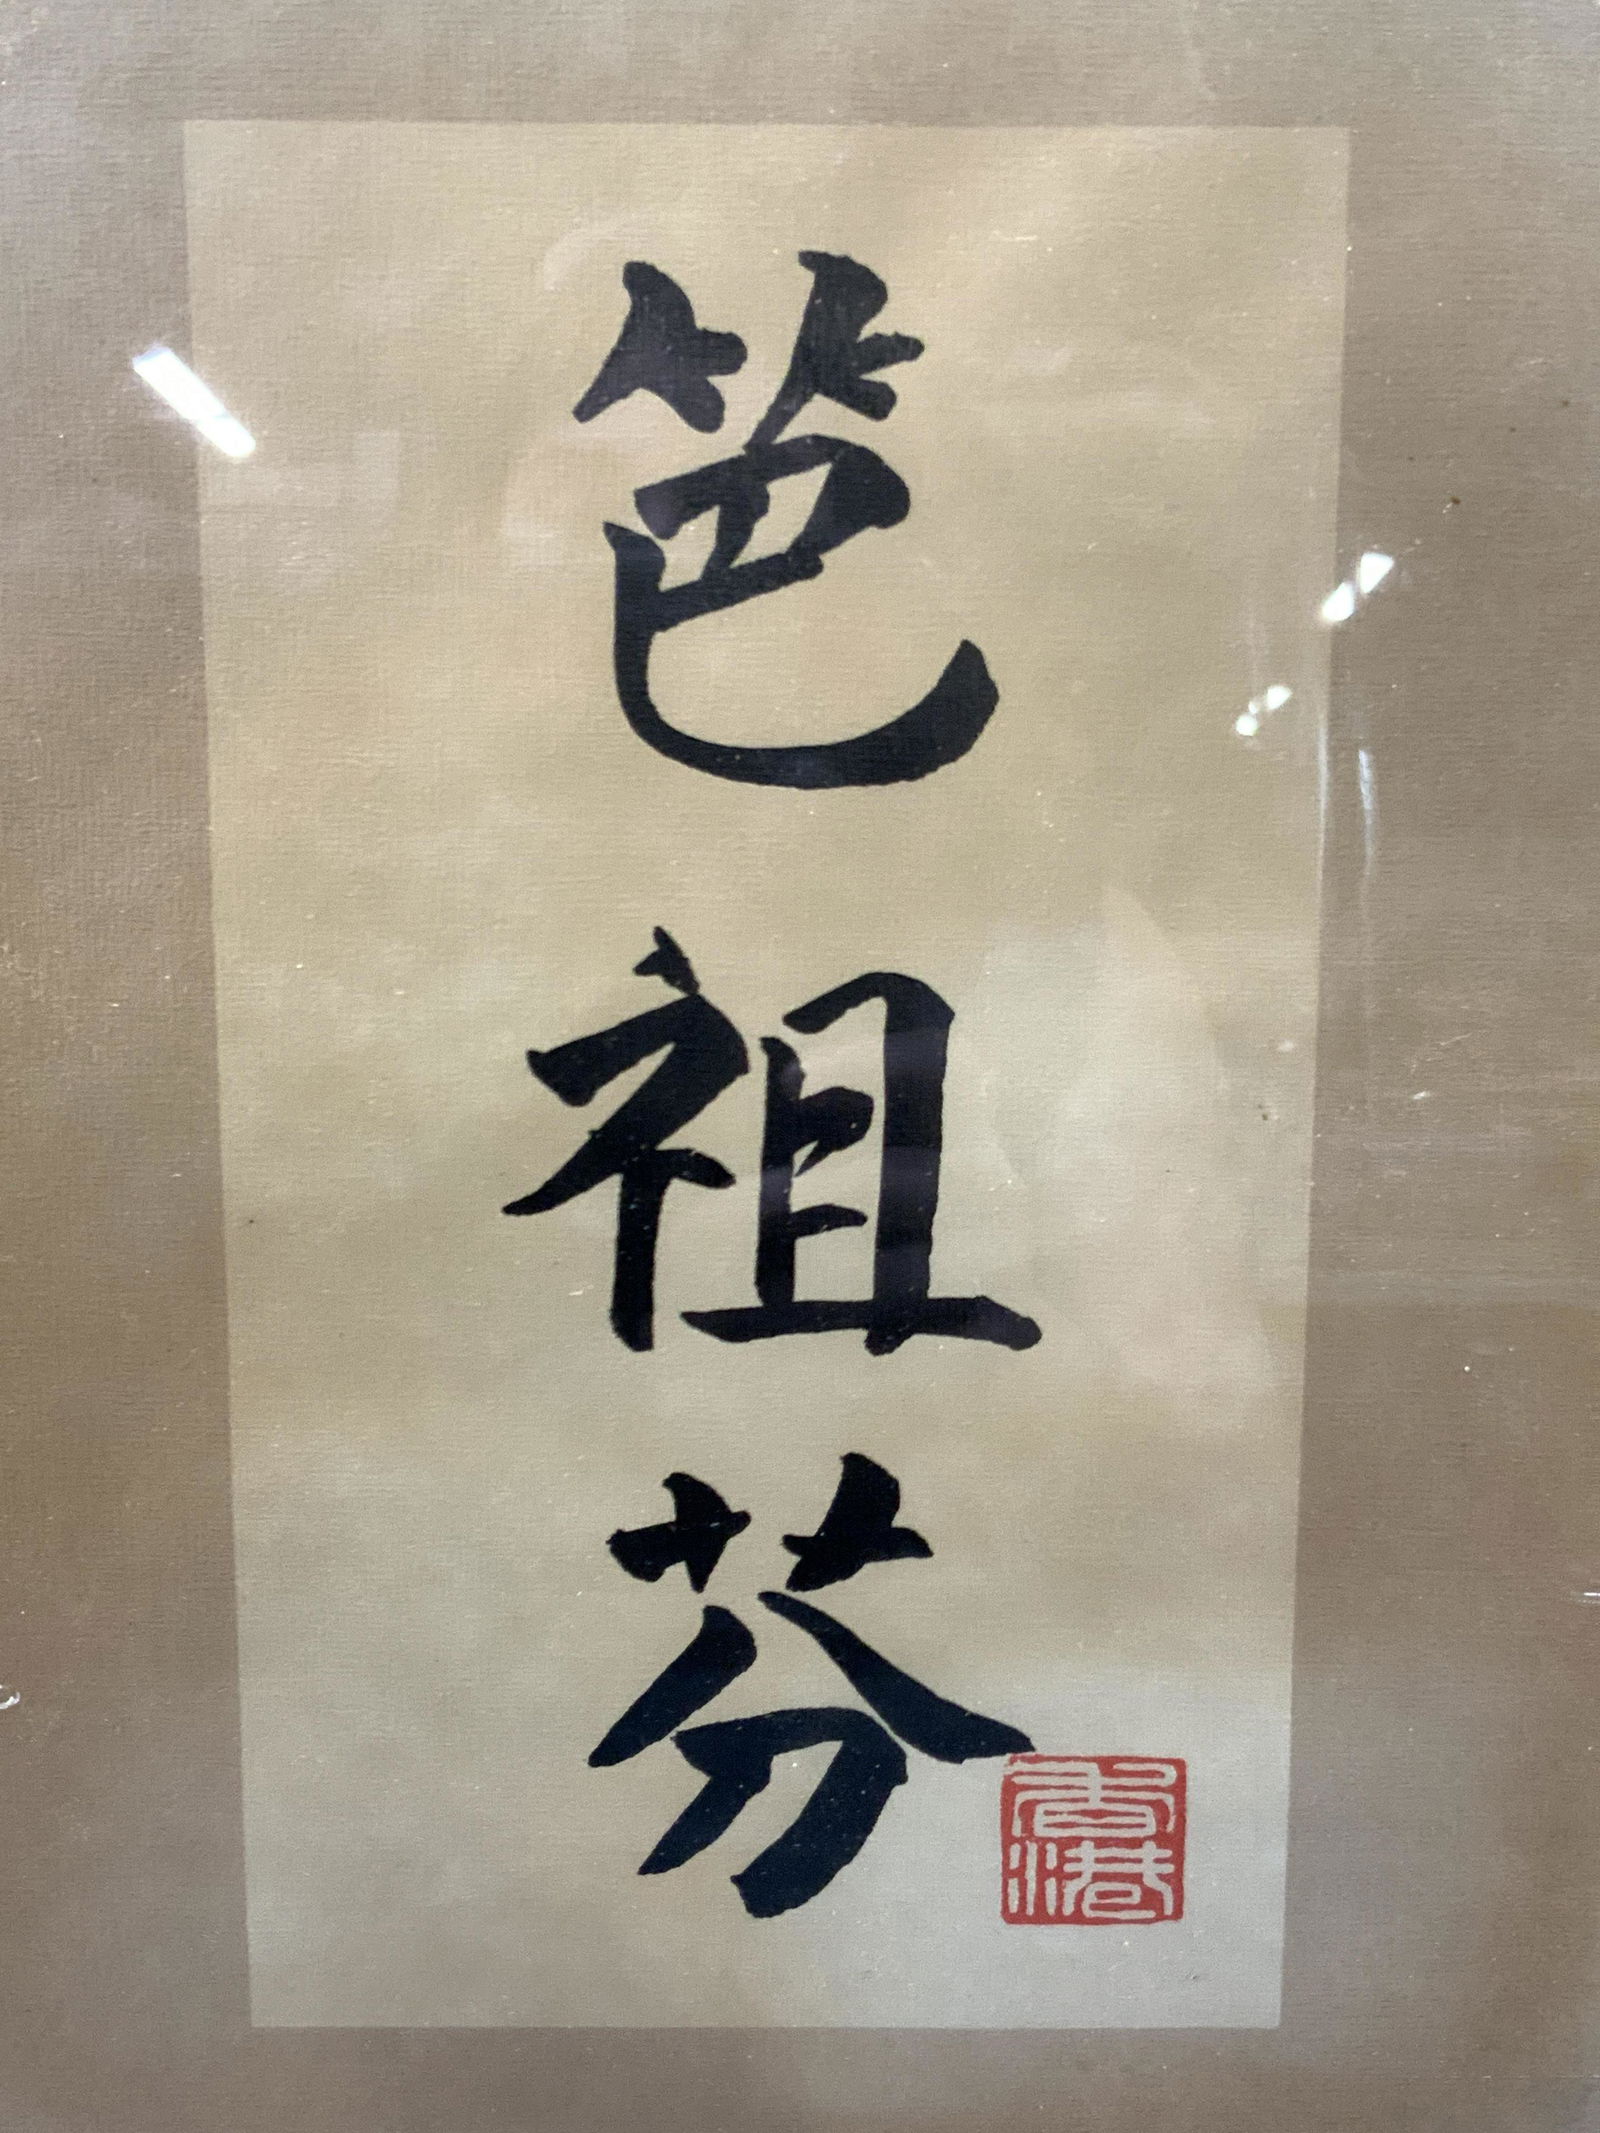 笆祖芬
香港